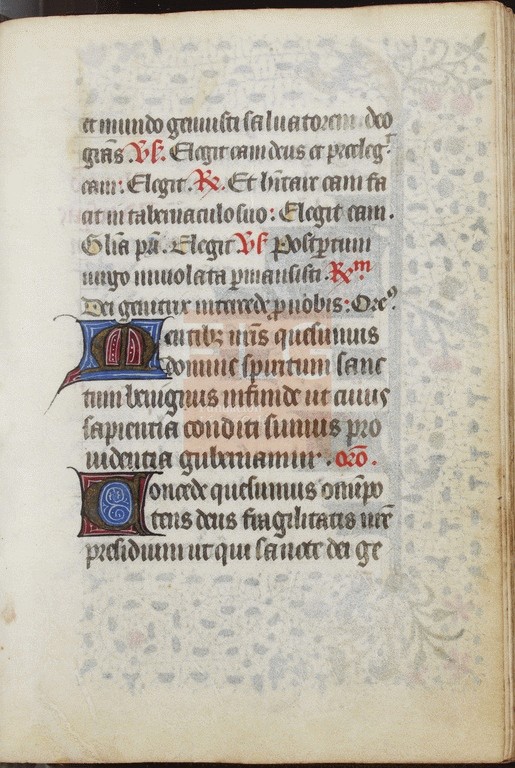 et mundo genuisti saluatorem. deo
grãs. V̸. Elegit eam deus et preeleg̾
eam: Elegit. R̸. Et hĩtare eam fa
cit in tabernaculo suo: Elegit eam.
Gl̃ia pã. Elegit V̸ Post ꝑtum
uirgo inuiolata ꝑmansisti. R̸m
Dei genitrix intercede ꝓ nobis: Oreꝰ
Mentibꝫ nr̃is quesumus
domine spiritum sanc
tum benignus infunde ut cuius
sapientia conditi sumus pro
uidentia gubernamur. orõ.
Concede quesumus oĩnipo
tens deus fragilitatis nr̃e
presidium ut qui sancte dei ge